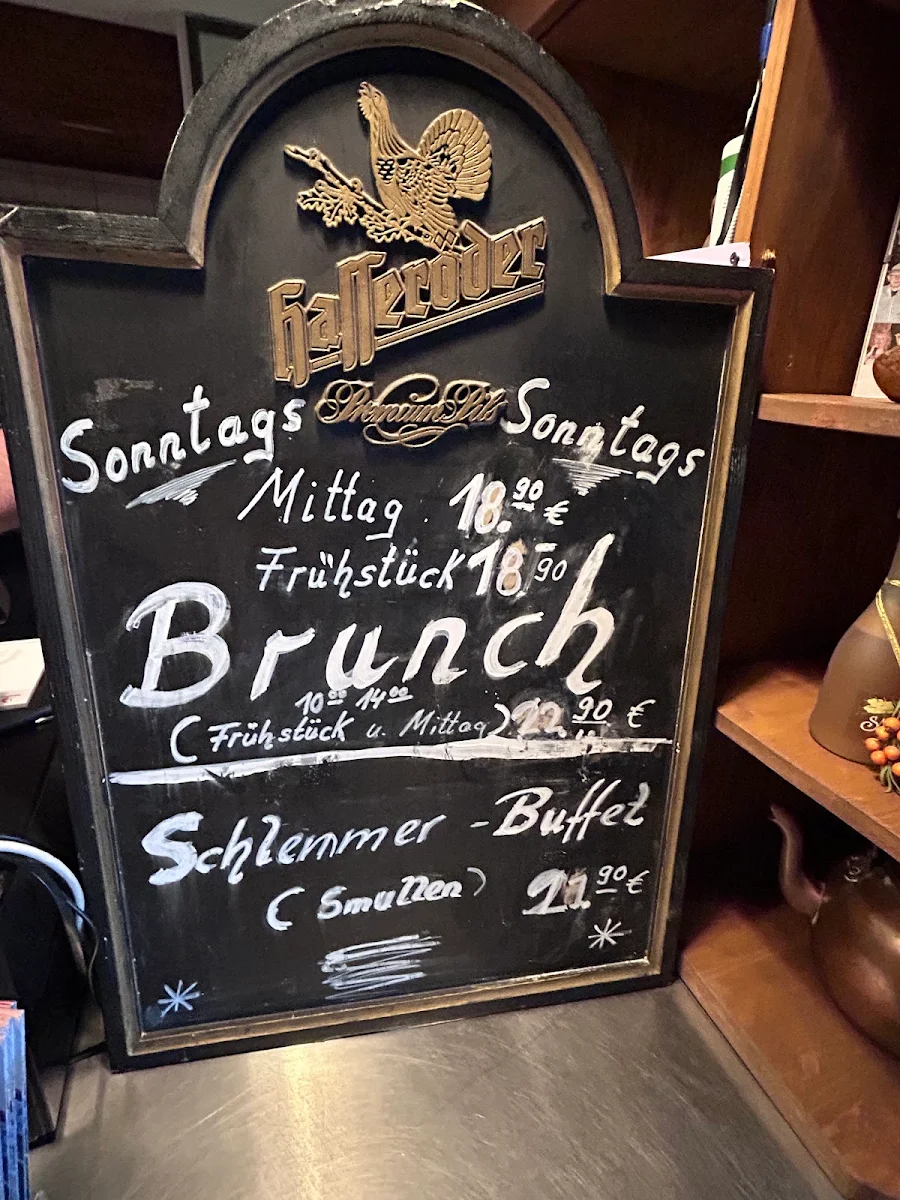 Hasseröder
Premium Pils
Sonntags Sonntags
Mittag 18.90 €
Frühstück 18 90
Brunch
10 00 14 00
(Frühstück u. Mittag) 90 €
Schlemmer - Buffet
(Smullen) 90 €